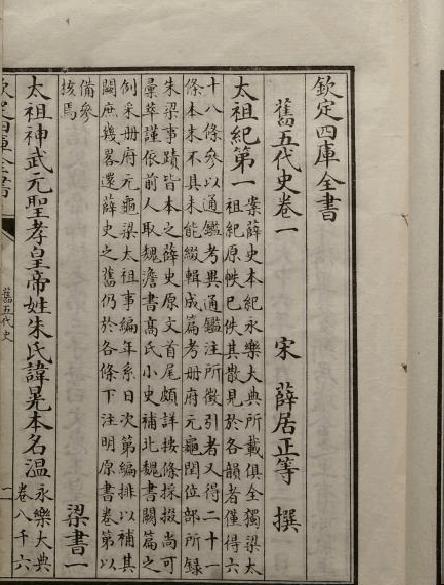 欽定四庫全書
舊五代史卷一　宋　薛居正等　撰
太祖紀第一
案薛史本紀永樂大典所載俱全獨梁太
祖紀原帙已佚其散見於各韻者僅得六
十八條參以通鑑考異通鑑注所徵引者又得二十一
條本末不具未能綴輯成篇考册府元龜閏位部所錄
朱梁事蹟皆本之薛史原文首尾頗詳按條採掇尚可
彙萃謹依前人取魏澹書髙氏小史補北魏書闕篇之
例采册府元龜梁太祖事編年系日次第編排以補其
闕庶幾畧還薛史之舊仍於各條下注明原書卷第以
備參
核焉
梁書一
太祖神武元聖孝皇帝姓朱氏諱晃本名温
永樂大典
卷八千六
欽定四庫全書
舊五代史